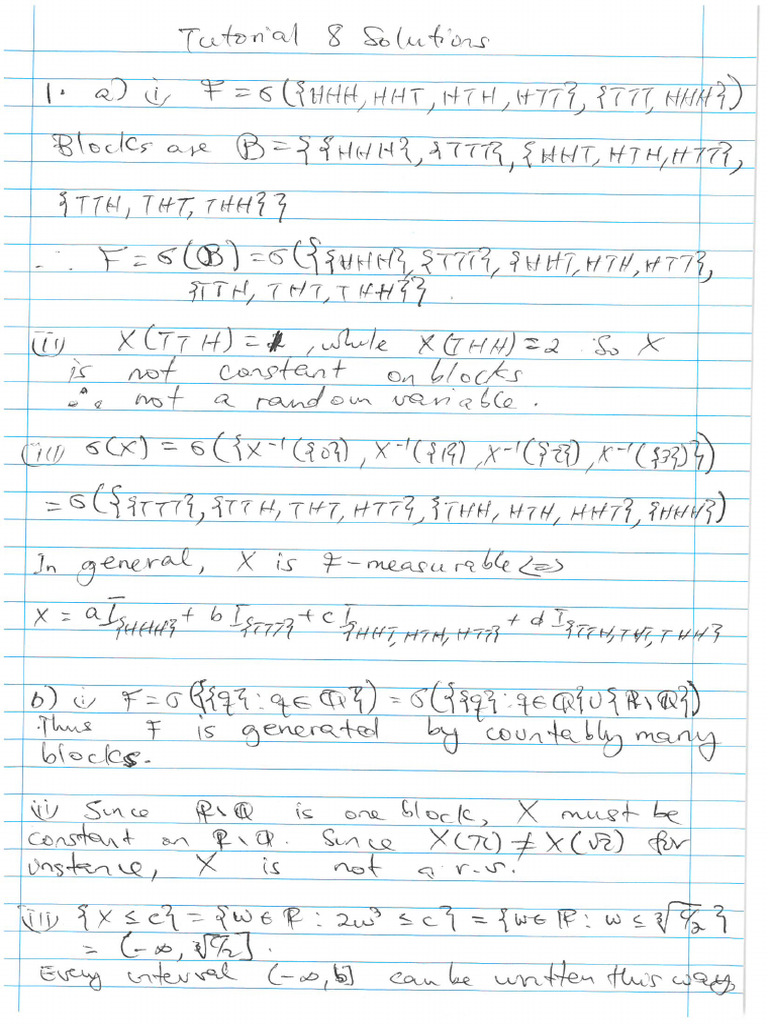 Tutorial 8 Solutions
1. a) i) F = σ({HHH, HHT, HTH, HTT}, {TTT, HHH})
Blocks are B = {{HHH}, {TTT}, {HHT, HTH, HTT},
{TTH, THT, THH}}
∴ F = σ(B) = σ({{HHH}, {TTT}, {HHT, HTH, HTT},
{TTH, THT, THH}}.
(ii) X(TTH) = 1, while X(THH) = 2. So X
is not constant on blocks
∴ not a random variable.
(iii) σ(X) = σ({X⁻¹({0}), X⁻¹({1}), X⁻¹({2}), X⁻¹({3})})
= σ({{TTT}, {TTH, THT, HTT}, {THH, HTH, HHT}, {HHH})
In general, X is F-measurable <=>
X = a I_{HHH} + b I_{TTT} + c I_{HHT, HTH, HTT} + d I_{TTH, THT, THH}
b) i) F = σ({{q} : q ∈ Q}) = σ({{q} : q ∈ Q} ∪ {R \ Q})
Thus F is generated by countably many
blocks.
ii) Since R \ Q is one block, X must be
constant on R \ Q. Since X(π) ≠ X(√2) for
instance, X is not a r.v.
(iii) {X ≤ c} = {w ∈ R : 2w³ ≤ c} = {w ∈ R : w ≤ ∛(c/2)}
= (-∞, ∛(c/2)].
Every interval (-∞, b] can be written this way,